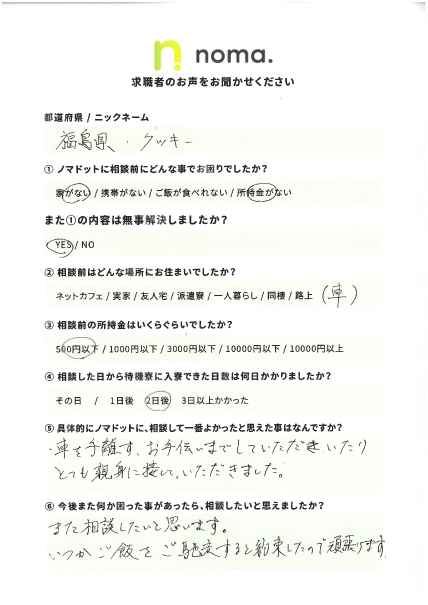 noma.
求職者のお声をお聞かせください
都道府県 / ニックネーム
福島県・クッキー
① ノマドットに相談前にどんな事でお困りでしたか?
家がない / 携帯がない / ご飯が食べれない / 所持金がない
また①の内容は無事解決しましたか?
YES / NO
② 相談前はどんな場所にお住まいでしたか?
ネットカフェ / 実家 / 友人宅 / 派遣寮 / 一人暮らし / 同棲 / 路上 (車)
③ 相談前の所持金はいくらぐらいでしたか?
500円以下 / 1000円以下 / 3000円以下 / 10000円以下 / 10000円以上
④ 相談した日から待機寮に入寮できた日数は何日かかりましたか?
その日 / 1日後 2日後 3日以上かかった
⑤ 具体的にノマドットに、相談して一番よかったと思えた事はなんですか?
・車を手離す、お手伝いまでしていただき、いたり
とても親身に接して、いただきました。
⑥ 今後また何か困った事があったら、相談したいと思えましたか?
また相談したいと思います。
いつかご飯をご馳走すると約束したので頑張ります。